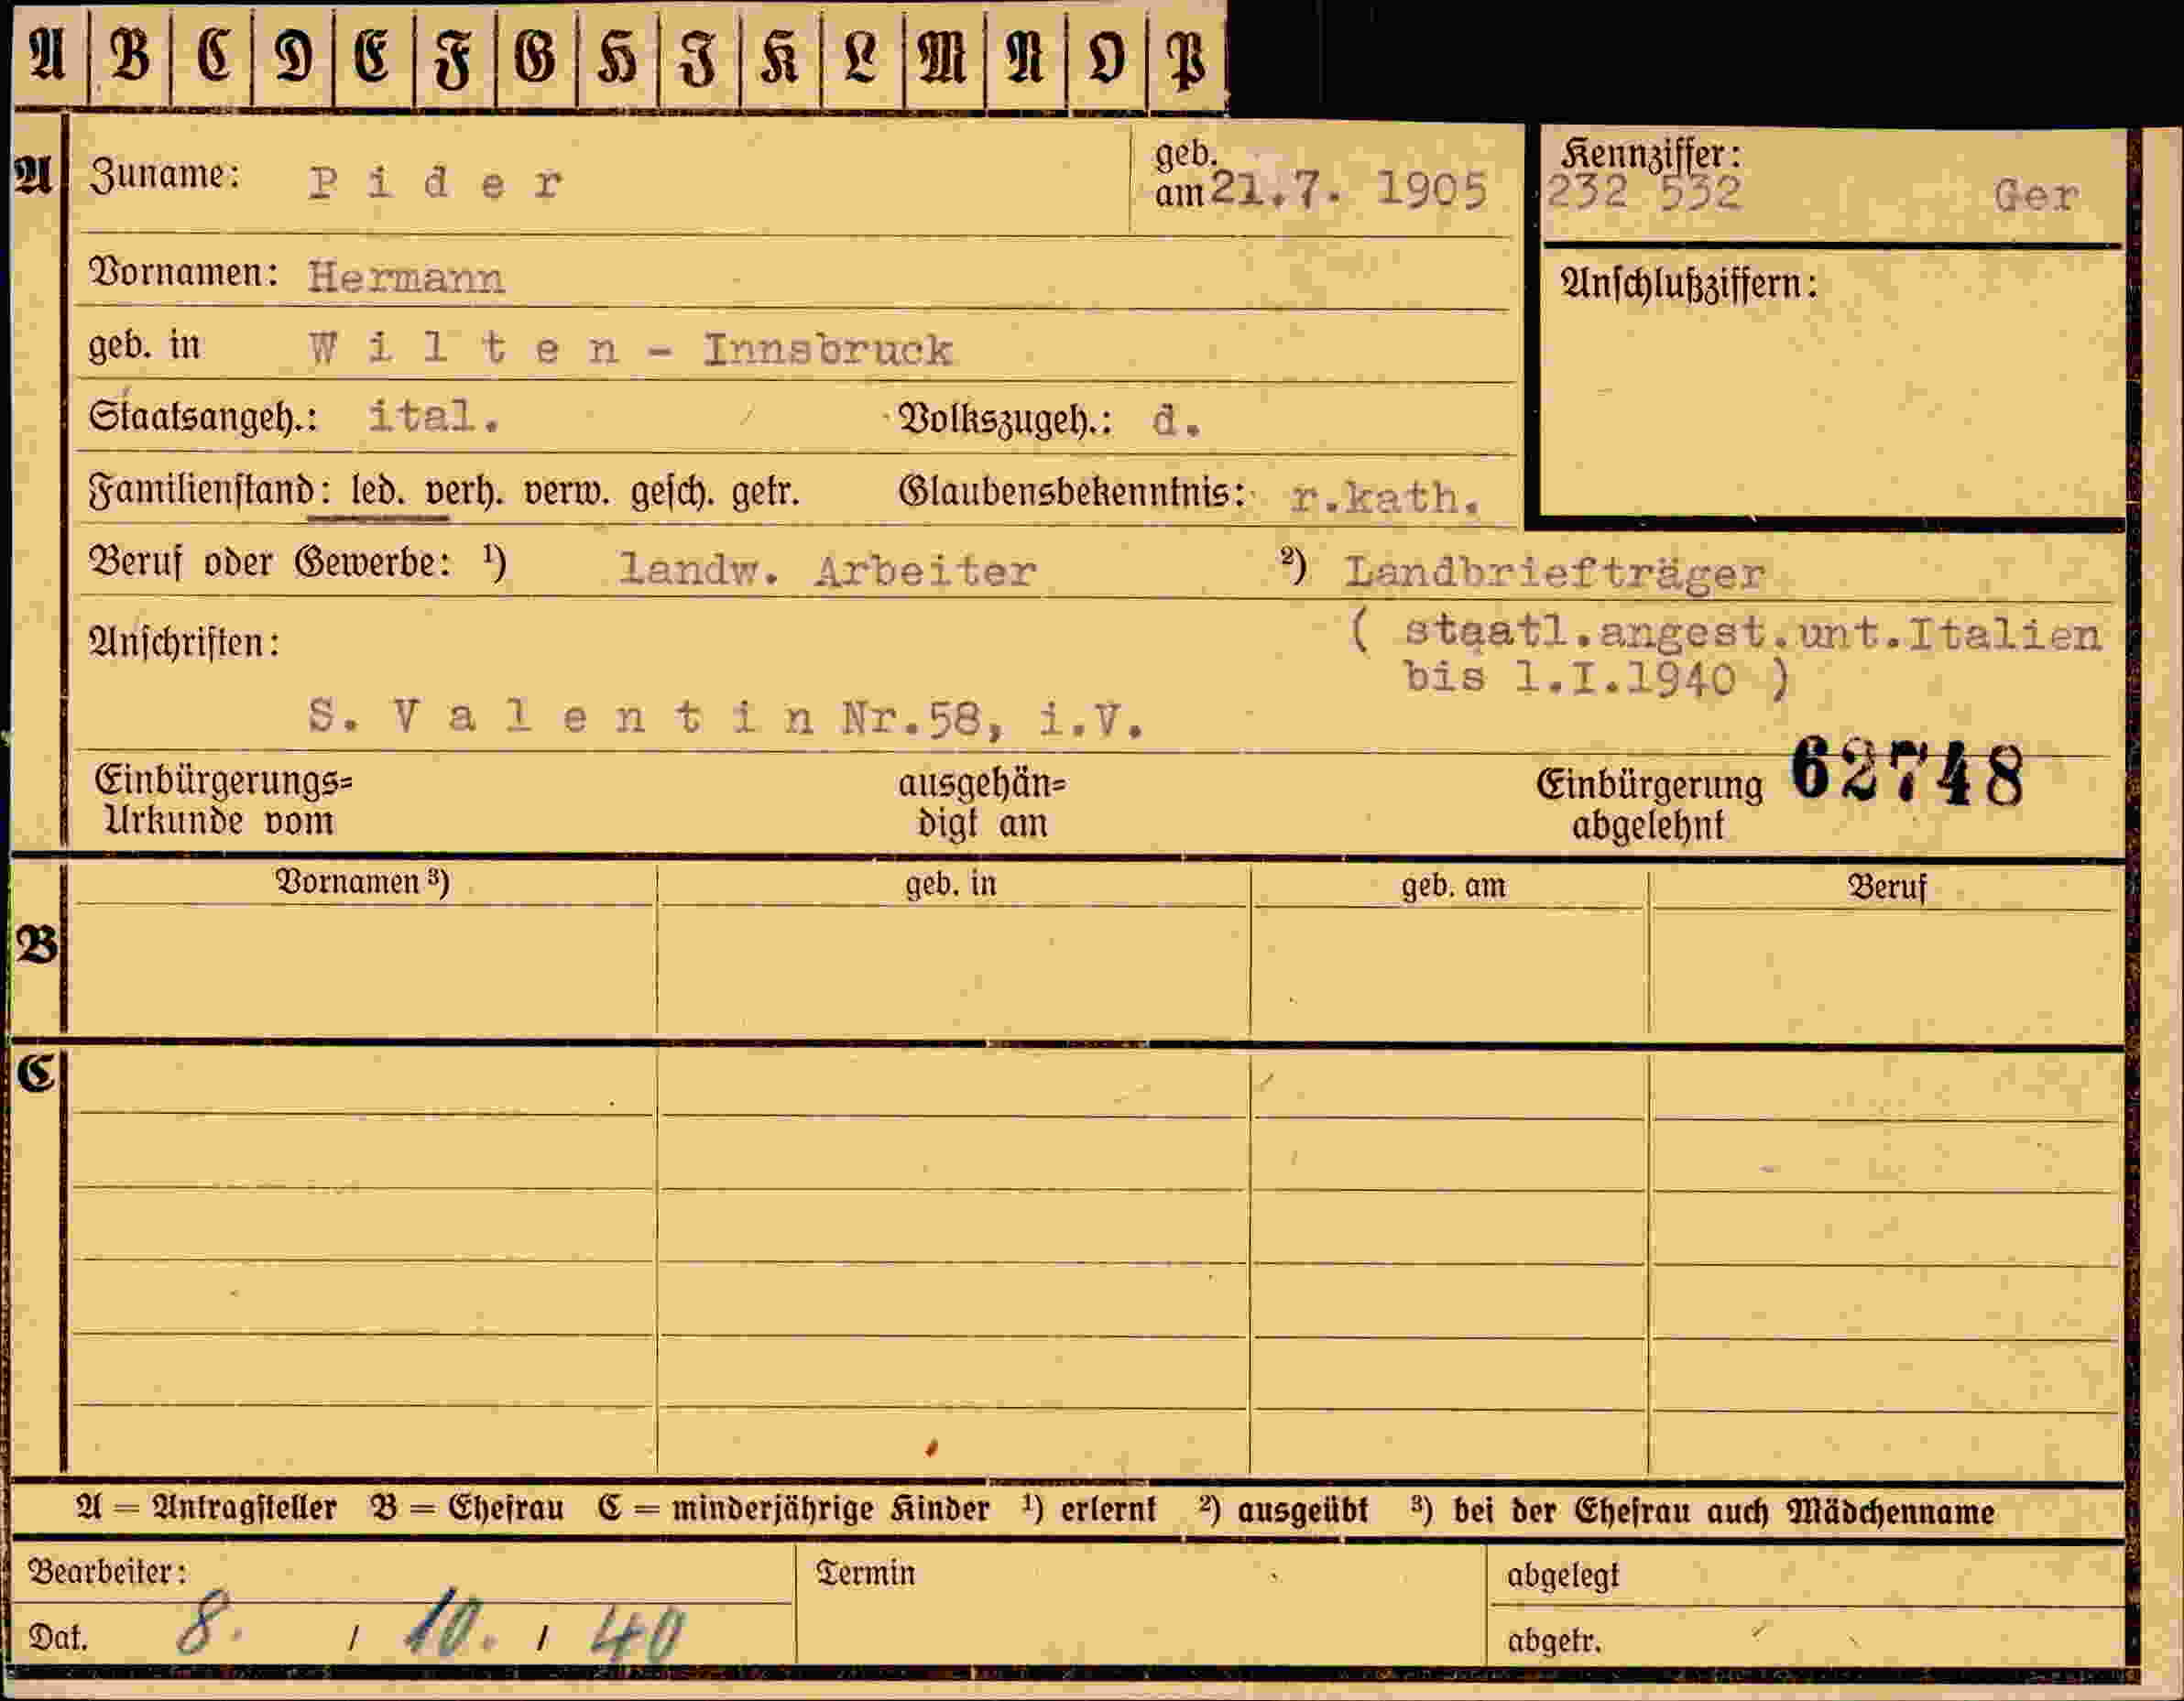 A B C D E F G H I K L M N O P
A Zuname: Pider geb. am 21.7. 1905 Kennziffer: 232 532 Ger
Vornamen: Hermann Anschlußziffern:
geb. in Wilten - Innsbruck
Staatsangeh.: ital. Volkszugeh.: d.
Familienstand: led. verh. verw. gesch. getr. Glaubensbekenntnis: r.kath.
Beruf oder Gewerbe: ¹) landw. Arbeiter ²) Landbriefträger
Anschriften: ( staatl.angest.unt.Italien
bis 1.I.1940 )
S. Valentin Nr.58, i.V.
Einbürgerungs= ausgehän= Einbürgerung 62748
Urkunde vom digt am abgelehnt
Vornamen ³) geb. in geb. am Beruf
B
C
A = Antragsteller B = Ehefrau C = minderjährige Kinder ¹) erlernt ²) ausgeübt ³) bei der Ehefrau auch Mädchenname
Bearbeiter: Termin abgelegt
Dat. 8. / 10. / 40 abgetr.